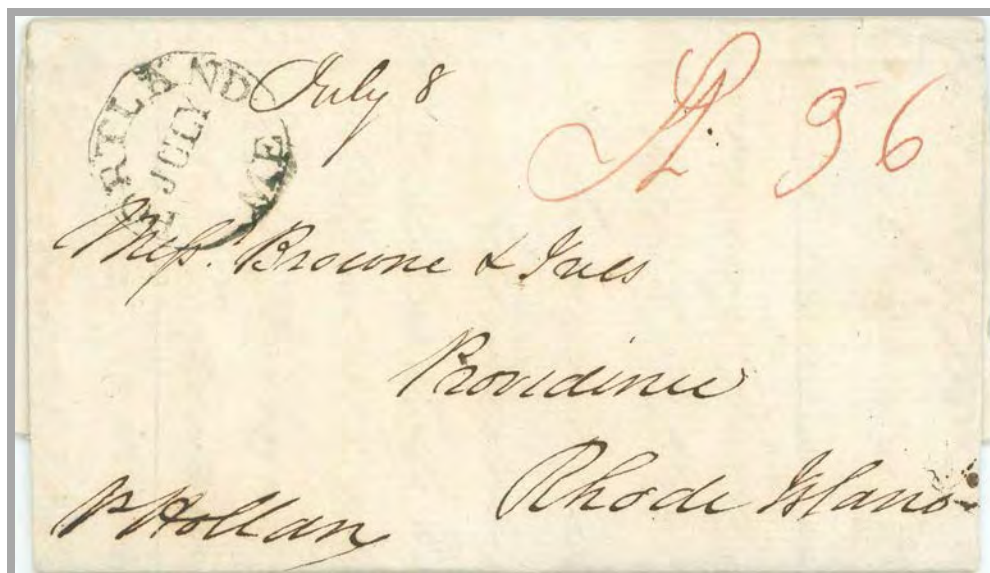 PORTLAND ME
JULY
July 8
Sh 56
Mess.rs Browne & Ives
Providence
Rhode Island
p Hollan